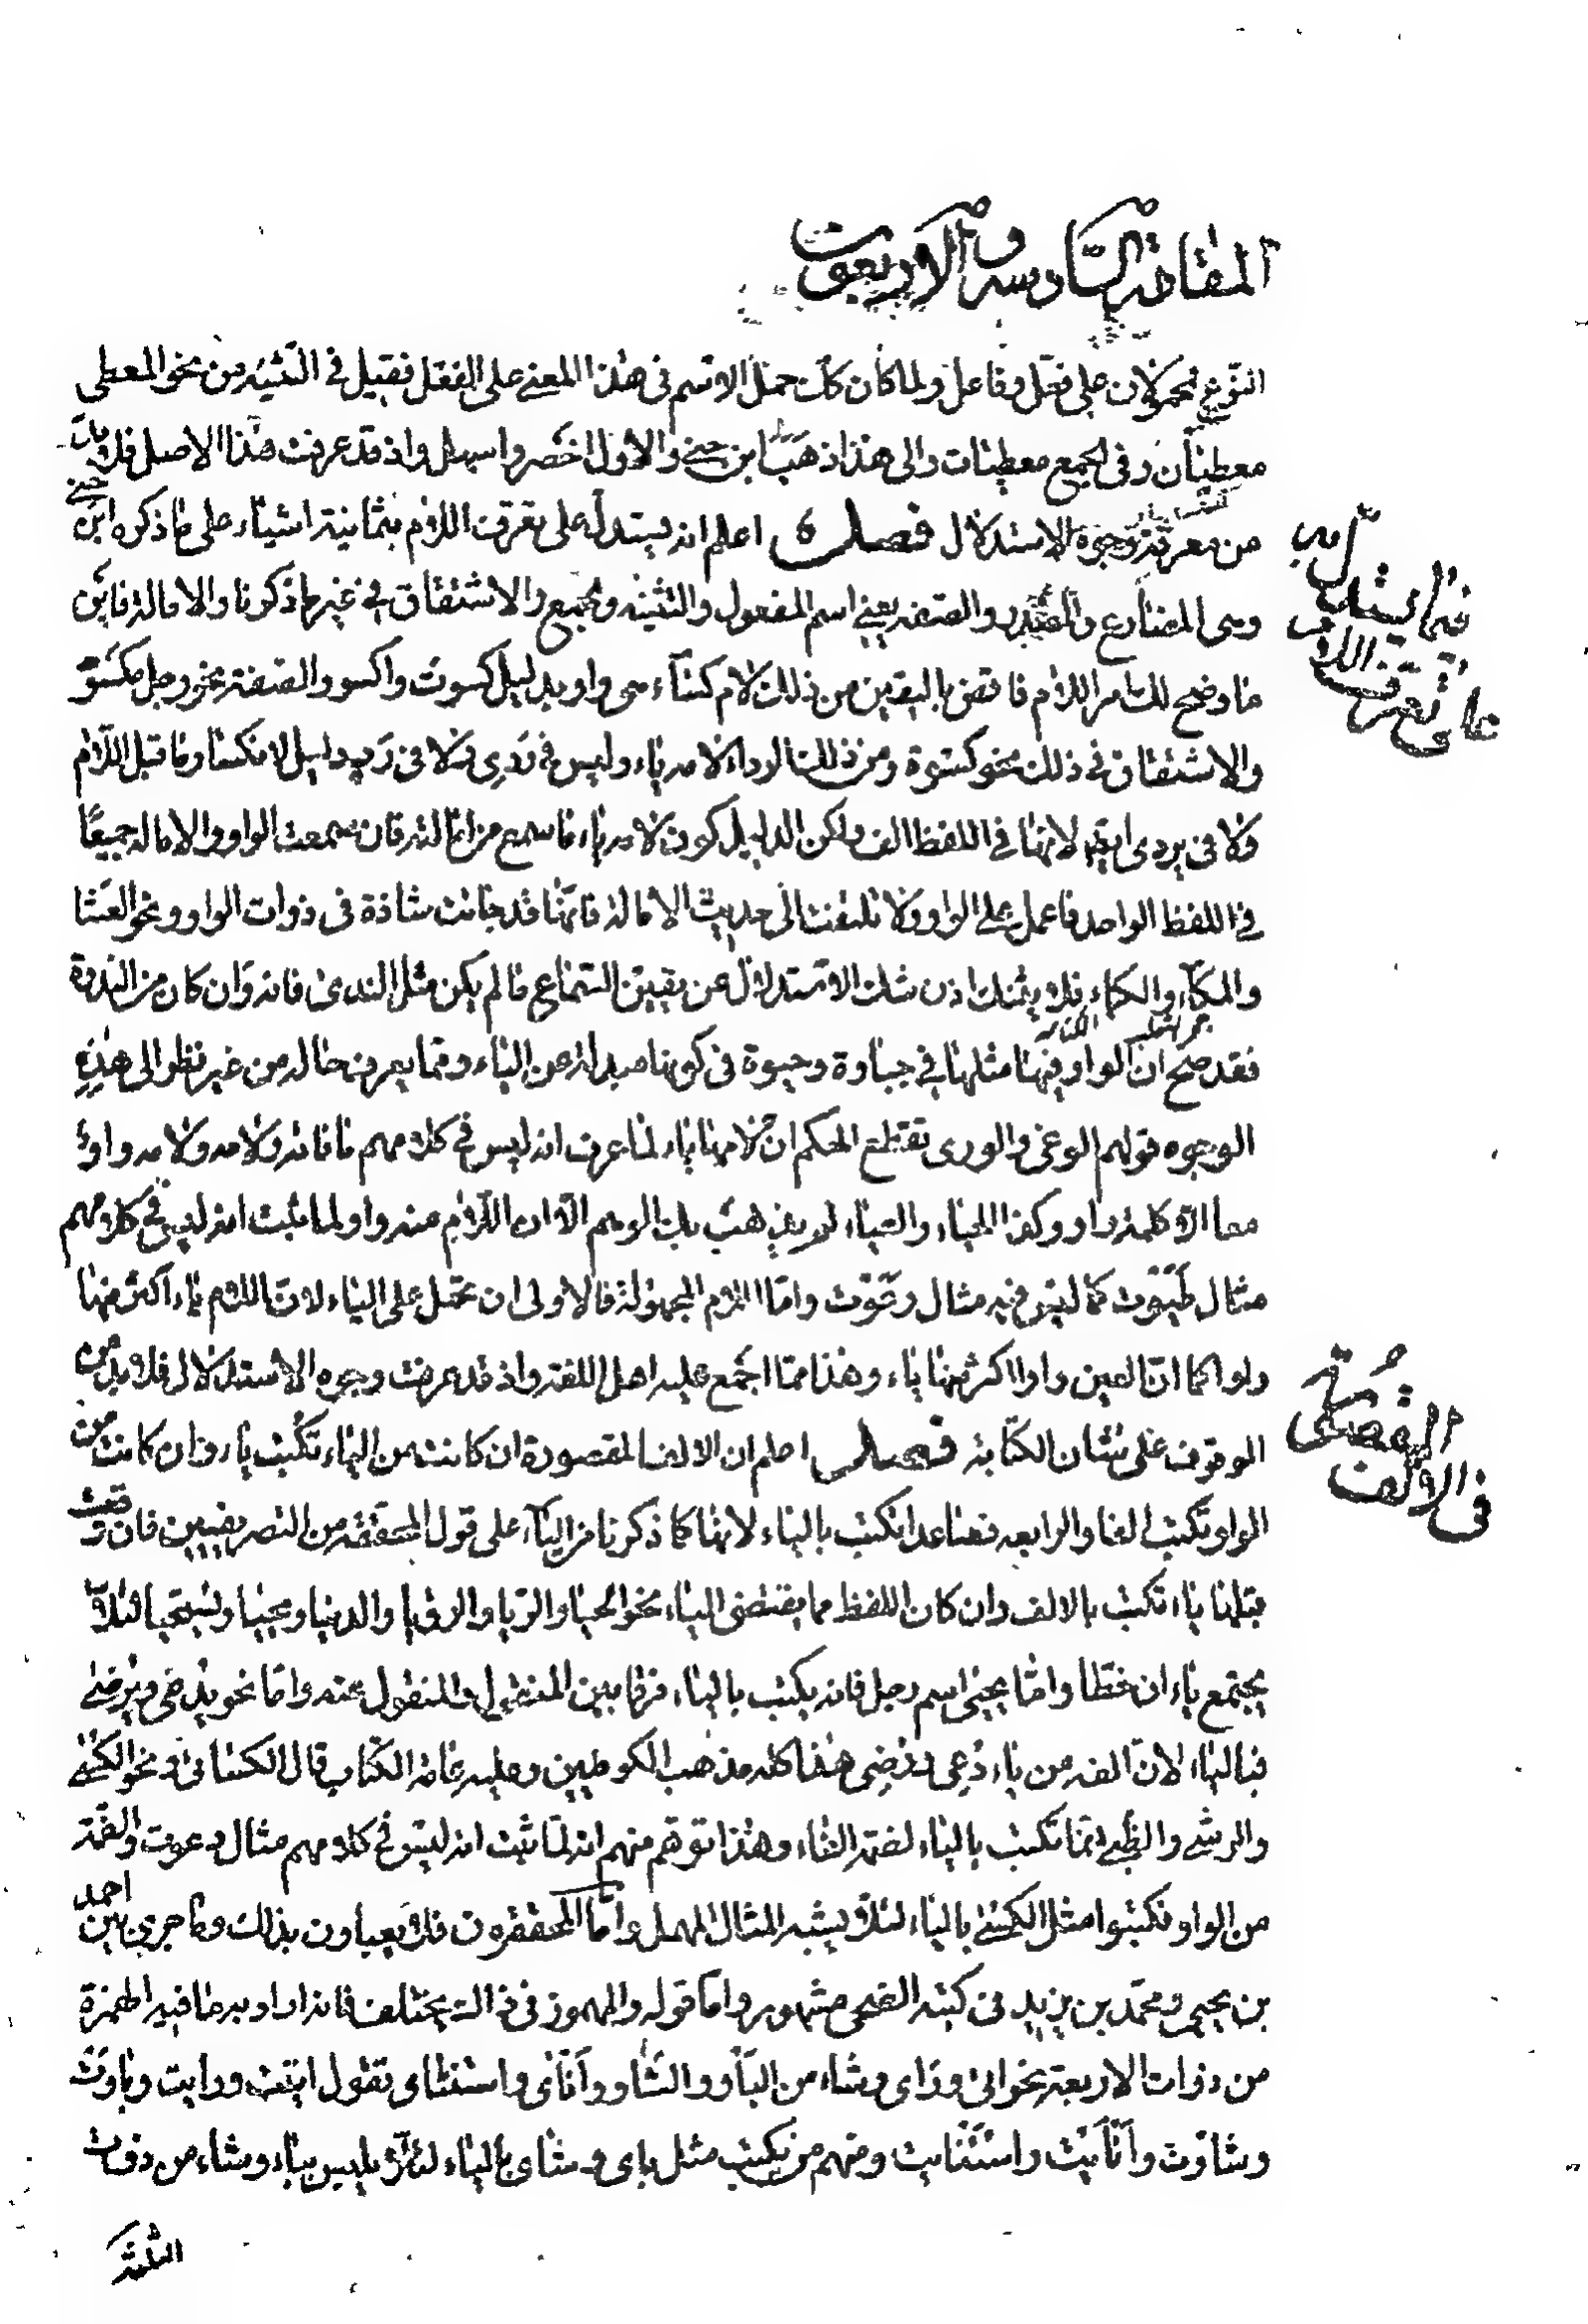 المقامة السادسة والاربعون
النوع محمولان على فعل وفاعل ولما كان كك حمل الاسم فى هذا المعنى على الفعل فقيل فى التثنية من نحو المعطى
معطيان وفى الجمع معطيات والى هذا ذهب ابن جنى والاول اخصر واسهل واذ قد عرفت هذا الاصل فلا بد
من معرفة وجوه الاستدلال فصل اعلم انه يستدل على تعرف اللام بثمانية اشياء على ما ذكره ابن جنى
وهى المضارع والصفة يعنى اسم المفعول والتثنية والجمع والاشتقاق فى غير ما ذكرنا والامالة فاين
ما وضح لك امر اللام فاقض باليقين من ذلك لام كساء هى واو بدليل كسوت واكسو والصفة نحو رجل مكسو
والاشتقاق فى ذلك نحو كسوة ومن ذلك الرداء لامه ياء وليس فى ردى ولا فى دليل لانكسار ما قبل اللام
ولا فى يردى ايضا لانها فى اللفظ الف ولكن الدليل كون لامه ياء ما سمع من امالته فان سمعت الواو والامالة جميعا
فى اللفظ الواحد فاعمل على الواو ولا تلتفت الى حديث الامالة فانها قد جاءت شاذة فى ذوات الواو ونحو العشا
والمكا والكباء فلا يثنك اذن شك الاستدلال عن يقين السماع فالم يكن مثل الندى فانه وان كان من الندوة
فقد صح ان الواو فيها مثلها فى جباوة وحيوة فى كونها مبدلة عن الياء ومما يعرف حاله من غير نظر الى هذه
الوجوه قولهم الوغى والورى تقطع الحكم ان لامها ياء لما عرف انه ليس فى كلامهم ما فائه ولامه واو
معا الا كلمة واو وكذا الحياء والعياء لم يذهب بك الوهم الا ان اللام منه واو لما ثبت انه ليس فى كلامهم
مثال كما ليس فيه مثال واما اللام المجهولة فالاولى ان تحمل على الياء لان اللام ياء اكثر منها
واوا كما ان العين واوا اكثر منها ياء وهذا مما اجمع عليه اهل اللغة واذ قد عرفت وجوه الاستدلال فلا بد من
الوقوف على شان الكتابة فصل اعلم ان الالف المقصورة ان كانت من الياء تكتب ياء وان كانت من
الواو تكتب الفا والرابعة فصاعدا تكتب بالياء لانها كما ذكرنا من الياء على قول المحققة من التصريفيين فان وقعت
قبلها ياء تكتب بالالف وان كان اللفظ مما يقتضى الياء نحو الحيا والريا والرؤيا والدنيا ويحيا ويستحيا لئلا
يجتمع ياءان خطا واما يحيى اسم رجل فانه يكتب بالياء فرقا بين المنقول والمنقول عنه واما نحو يدعى ويرضى
فبالياء لان الفه من ياء دعى ورضى هذا كله مذهب الكوفيين وعليه عامة الكتاب قال الكسائى فى نحو الكسى
والرشى والظبى انما تكتب بالياء لضمة الفاء وهذا توهم منهم انه لما ثبت انه ليس فى كلامهم مثال وعوت والضمة
من الواو فكتبوا مثل الكسى بالياء لئلا يشبه المثال المهمل واما المحققون فلا يعباون بذلك وما جرى بين احمد
بن يحيى ومحمد بن يزيد فى كتبه الضحى مشهور واما قوله والمهموز فى ذلك مختلف فانه اراد به ما فيه الهمزة
من ذوات الاربعة نحو اتى وراى وشاء من الباو والشاو واناى واستناى تقول اتيت ورايت وباوت
وشاوت وانايت واستنايت ومنهم من يكتب مثل باى وشاى بالياء لئلا يلبس بباء وشاء من ذوات
الثلثة
فيما يستدل به
على تعرف اللام
القصة
فى الالف